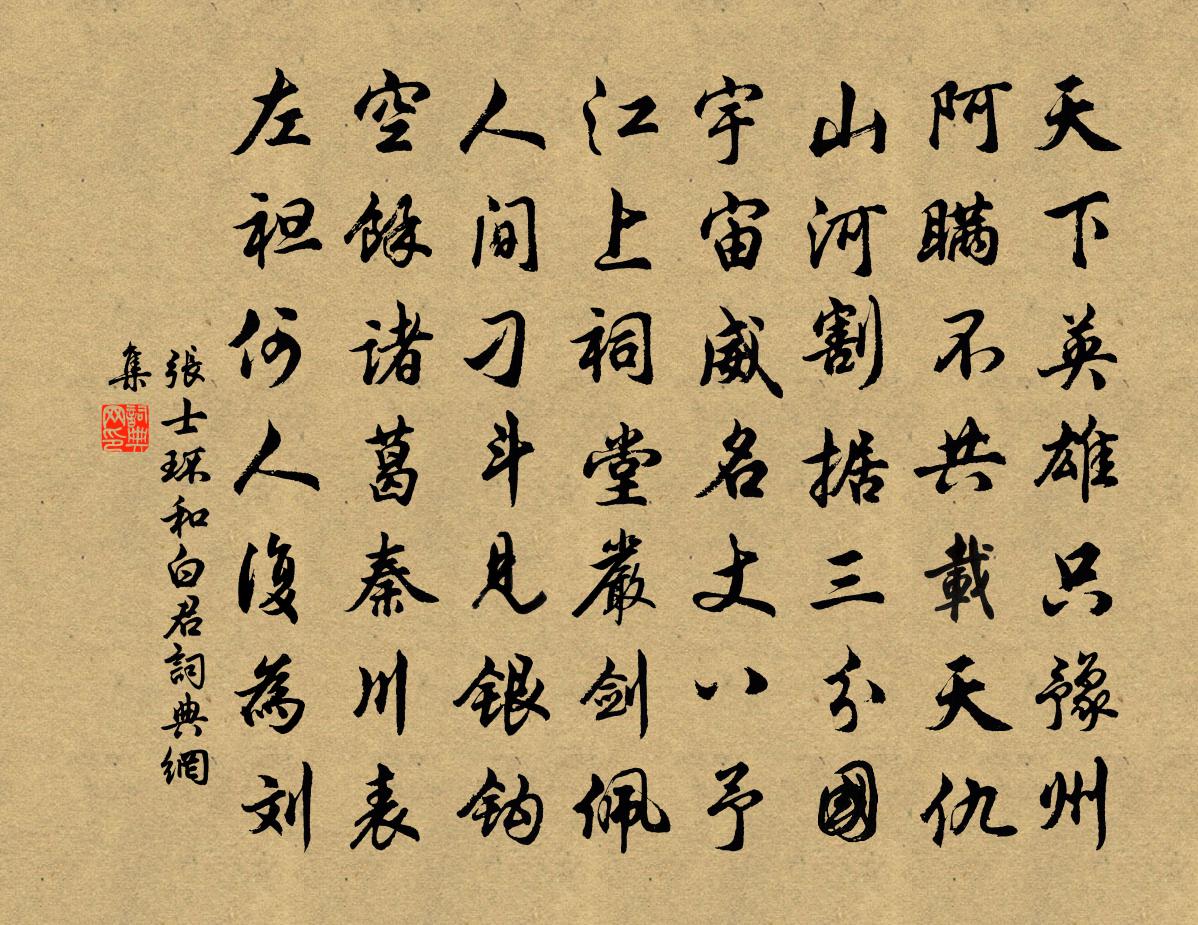 天下英雄只豫州
阿瞞不共載天仇
山河割据三分國
宇宙威名丈八予
江上祠堂嚴剑佩
人間刁斗見銀钩
空餘诸葛秦川表
左袒何人復為刘
張士环和白君詞典網
集
詞典
网印